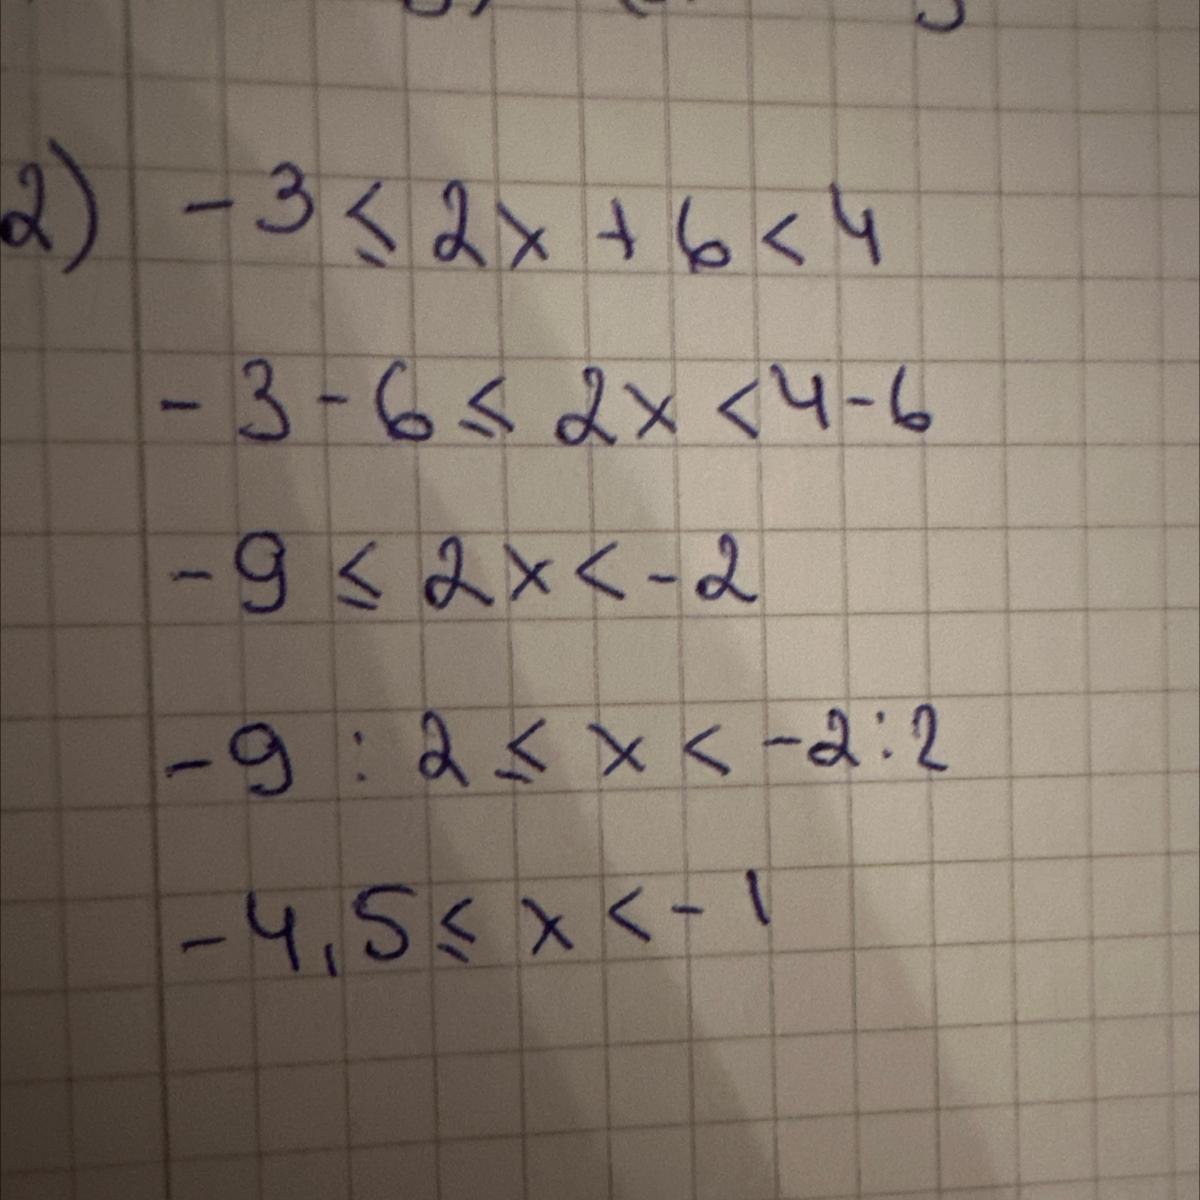 2) -3 ≤ 2x + 6 < 4
-3 - 6 ≤ 2x < 4 - 6
-9 ≤ 2x < -2
-9 : 2 ≤ x < -2 : 2
-4,5 ≤ x < -1